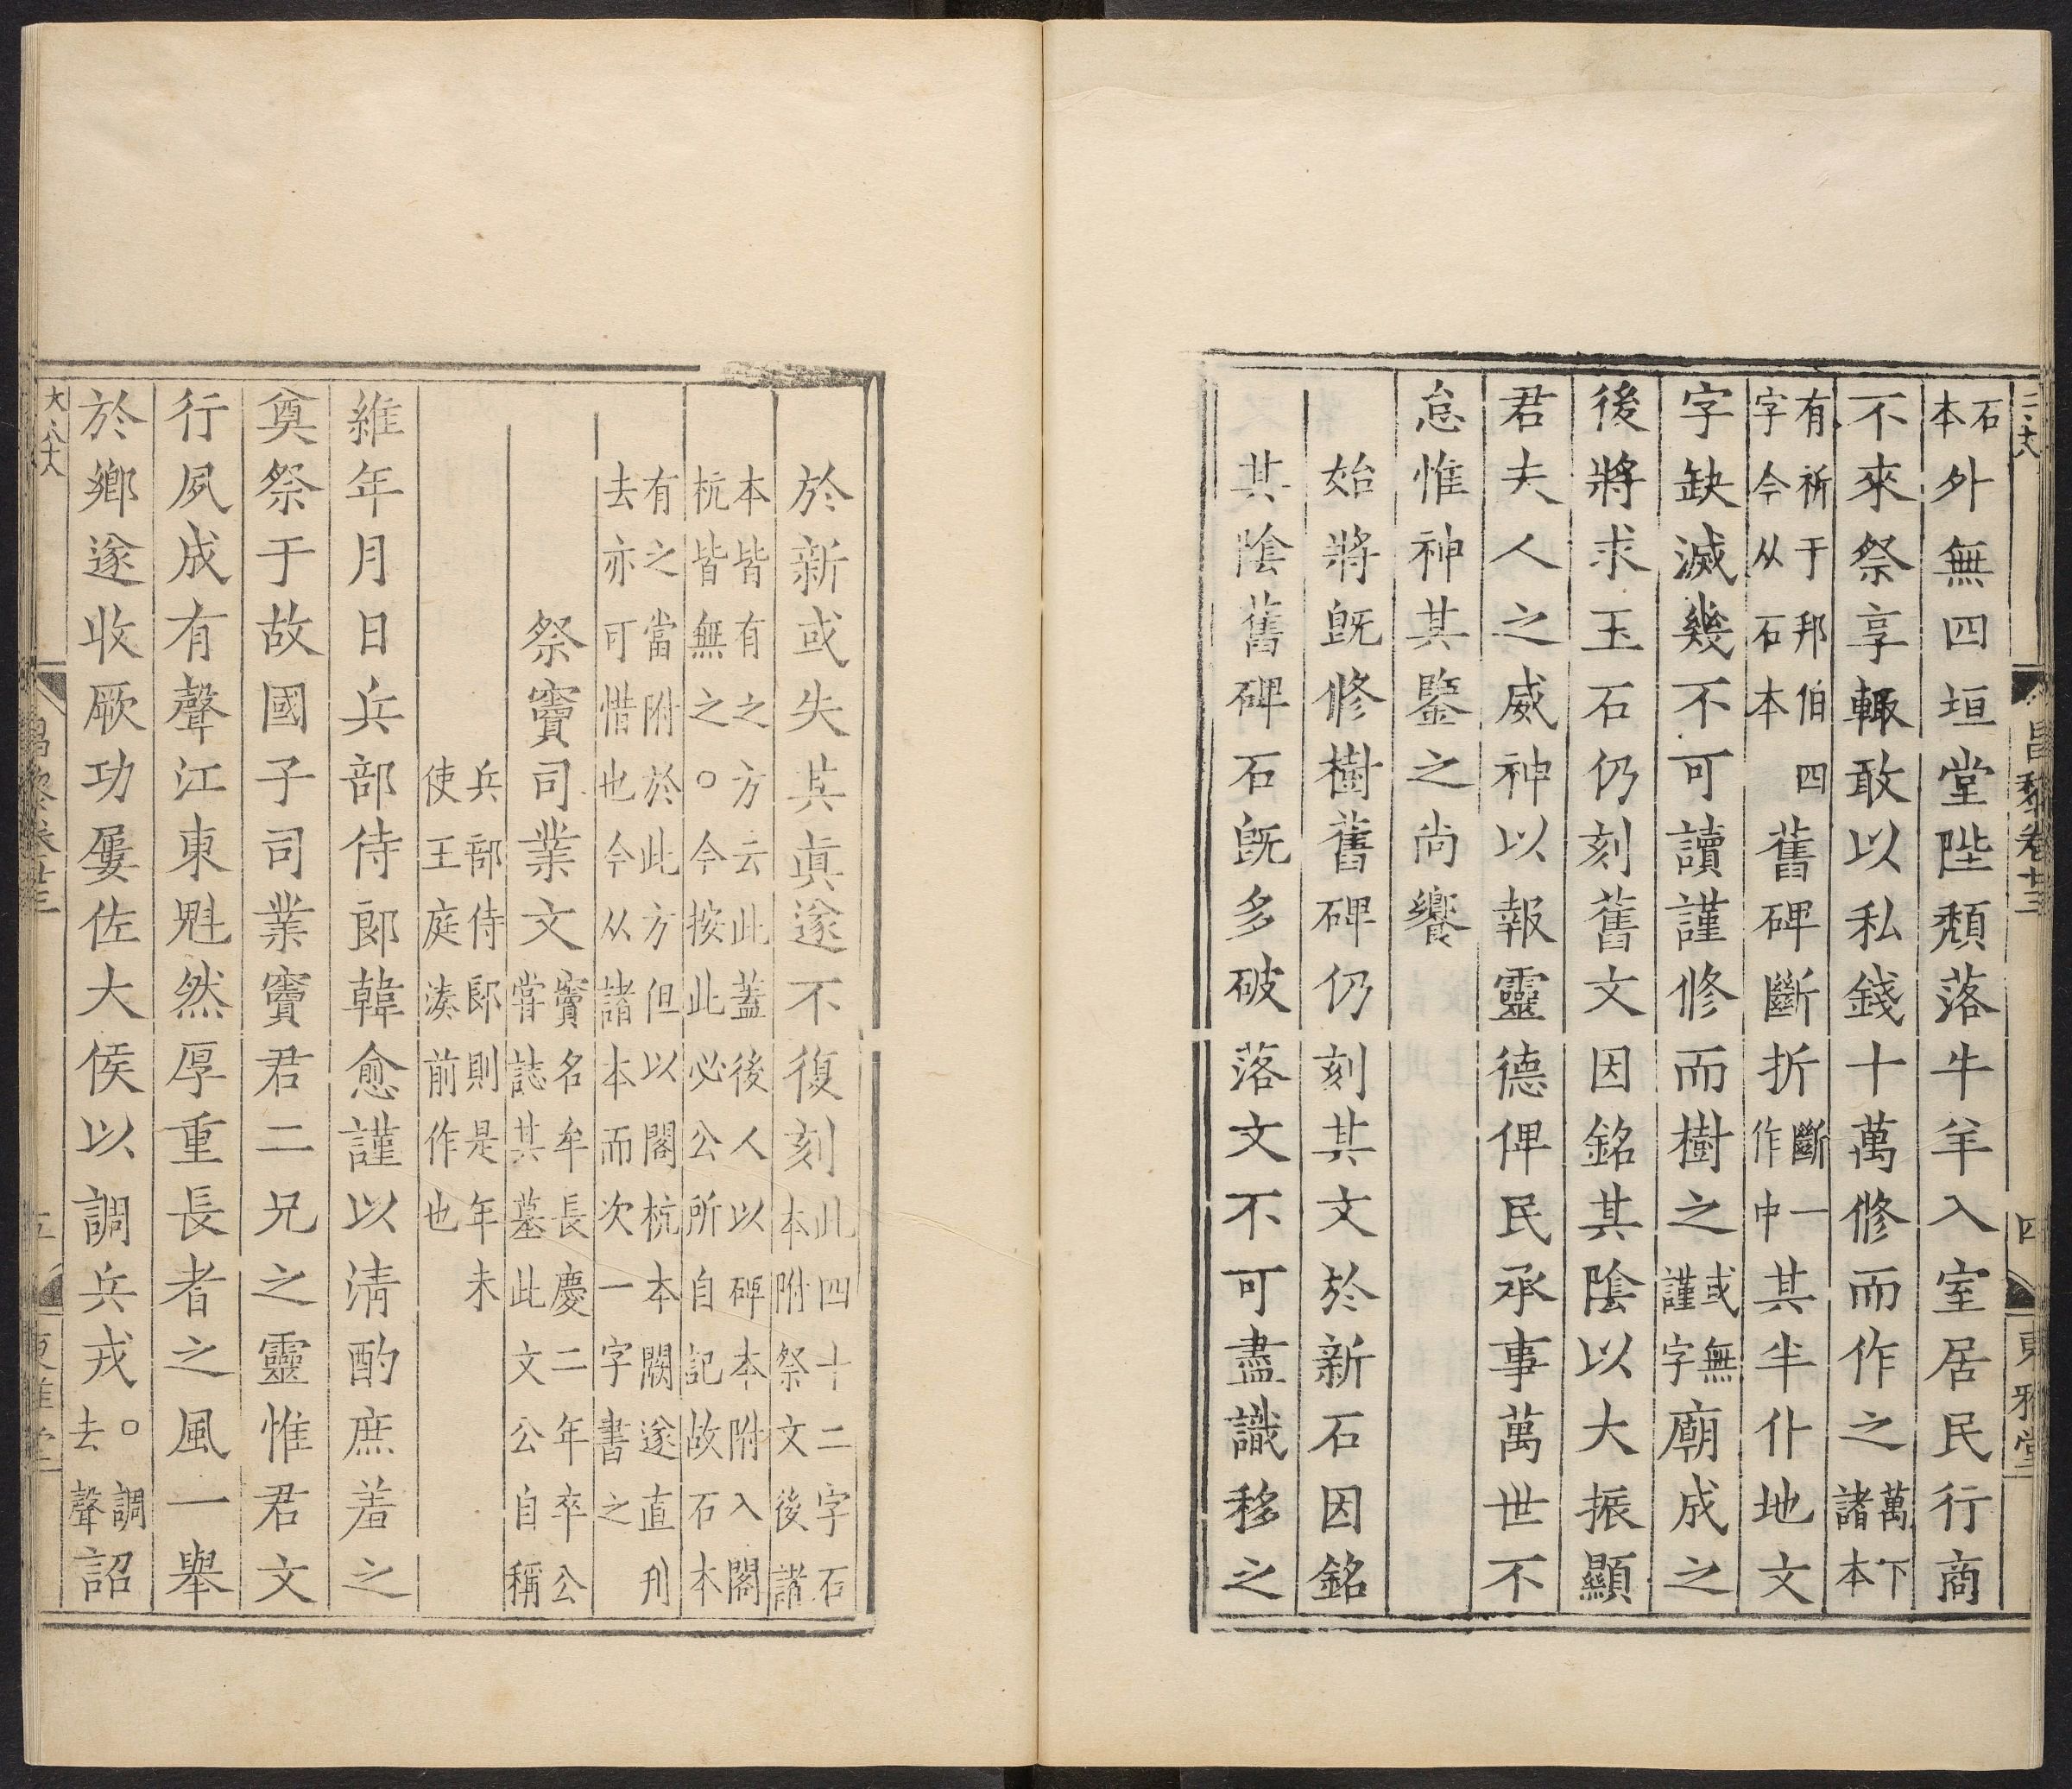 石本外無四垣堂陛頹落牛羊入室居民行商
不來祭享輒敢以私錢十萬修而作之萬下諸本
有祈于邦伯四字今从石本舊碑斷折斷一作中其半仆地文
字缺滅幾不可讀謹修而樹之或無謹字廟成之
後將求玉石仍刻舊文因銘其陰以大振顯
君夫人之威神以報靈德俾民承事萬世不
怠惟神其鑒之尚饗
始將旣修樹舊碑仍刻其文於新石因銘
其陰舊碑石旣多破落文不可盡識移之
昌黎卷廿三
四
東雅堂
於新或失其眞遂不復刻此四十二字石本附祭文後諸
本皆有之方云此蓋後人以碑本附入閣杭皆無之○今按此必公所自記故石本
有之當附於此方但以閣杭本闕遂直刋去亦可惜也今从諸本而次一字書之
祭竇司業文竇名牟長慶二年卒公嘗誌其墓此文公自稱
兵部侍郎則是年未使王庭湊前作也
維年月日兵部侍郎韓愈謹以淸酌庶羞之
奠祭于故國子司業竇君二兄之靈惟君文
行夙成有聲江東魁然厚重長者之風一舉
於鄉遂收厥功屢佐大侯以調兵戎○調去聲詔
昌黎卷廿三
五
東雅堂